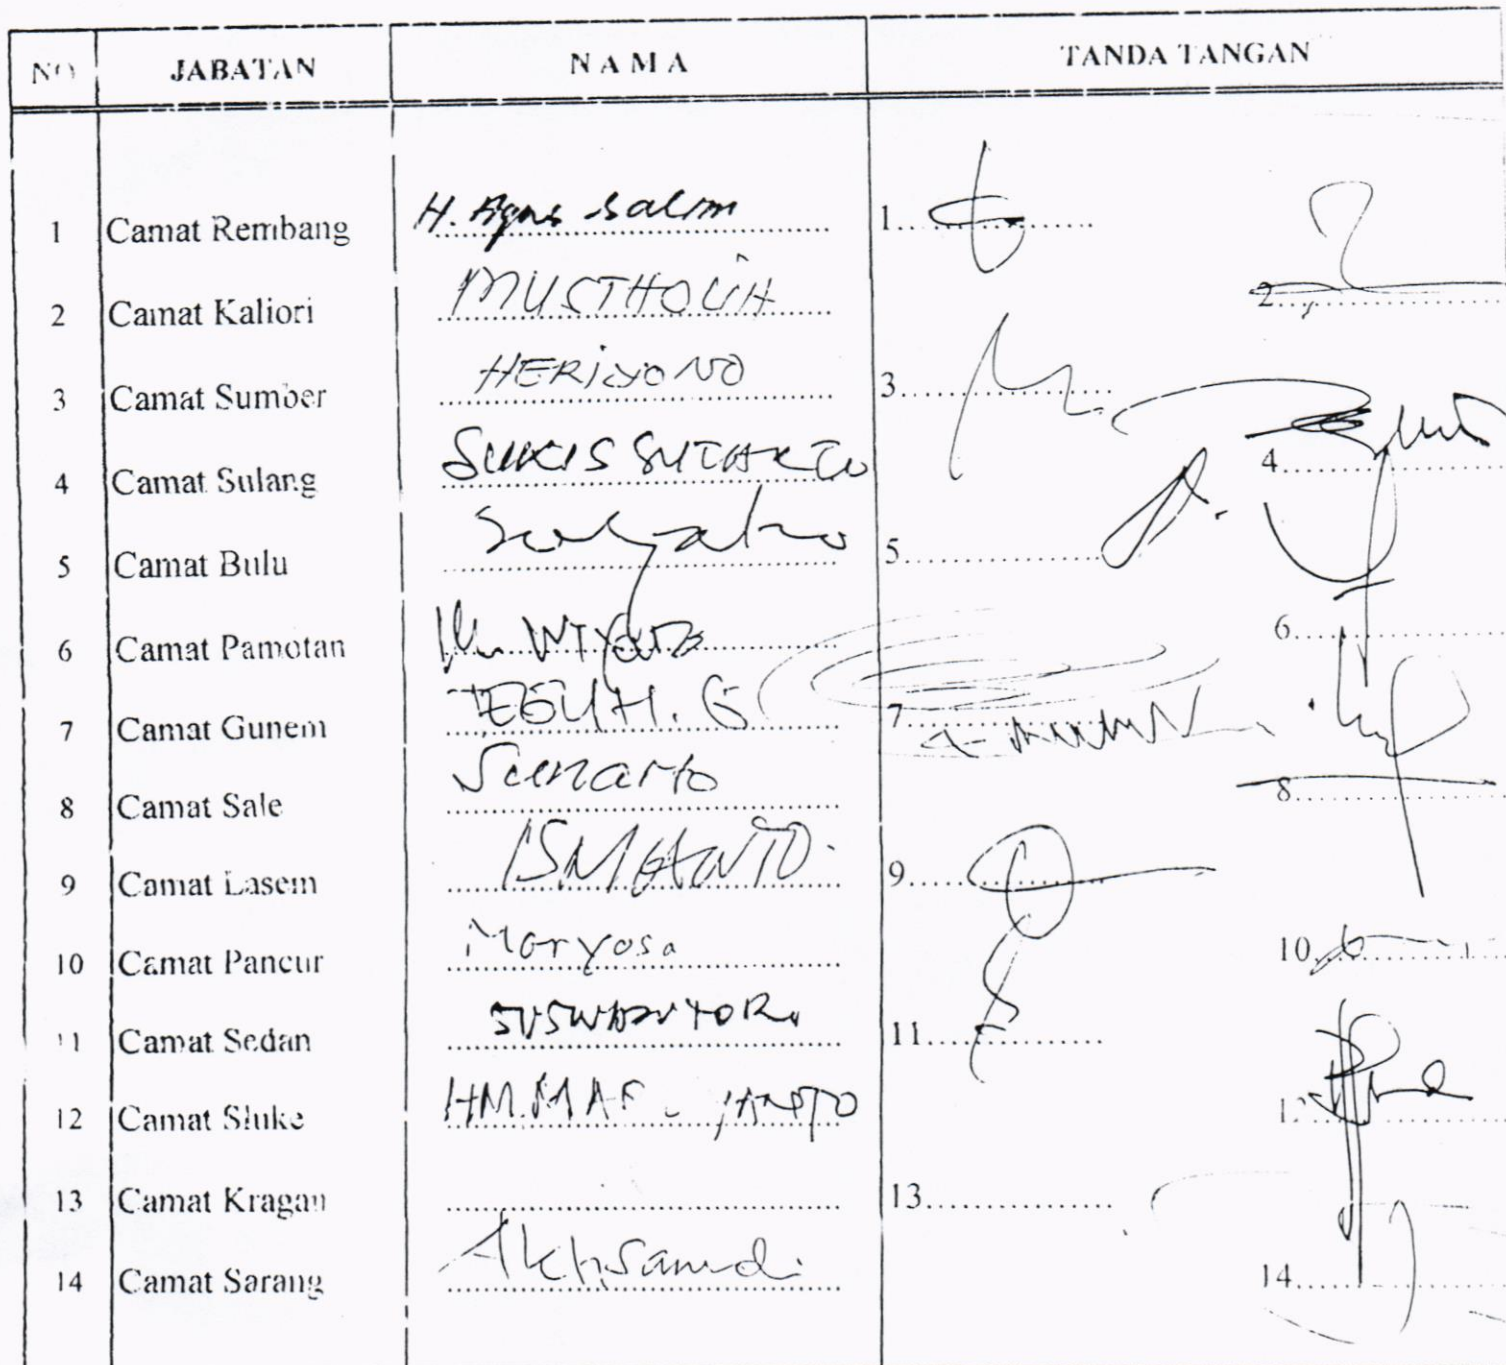 NO JABATAN N A M A TANDA TANGAN
1 Camat Rembang H. Agus Salim 1
2 Camat Kaliori MUSTHOLIH 2
3 Camat Sumber HERIYONO 3
4 Camat Sulang SUKIS SUTARTO 4
5 Camat Bulu 5
6 Camat Pamotan 6
7 Camat Gunem TEGUH. G 7
8 Camat Sale Sunarto 8
9 Camat Lasem ISMIANTO. 9
10 Camat Pancur Maryosa 10
11 Camat Sedan 11
12 Camat Sluke 12
13 Camat Kragan 13
14 Camat Sarang Akhsanudi 14